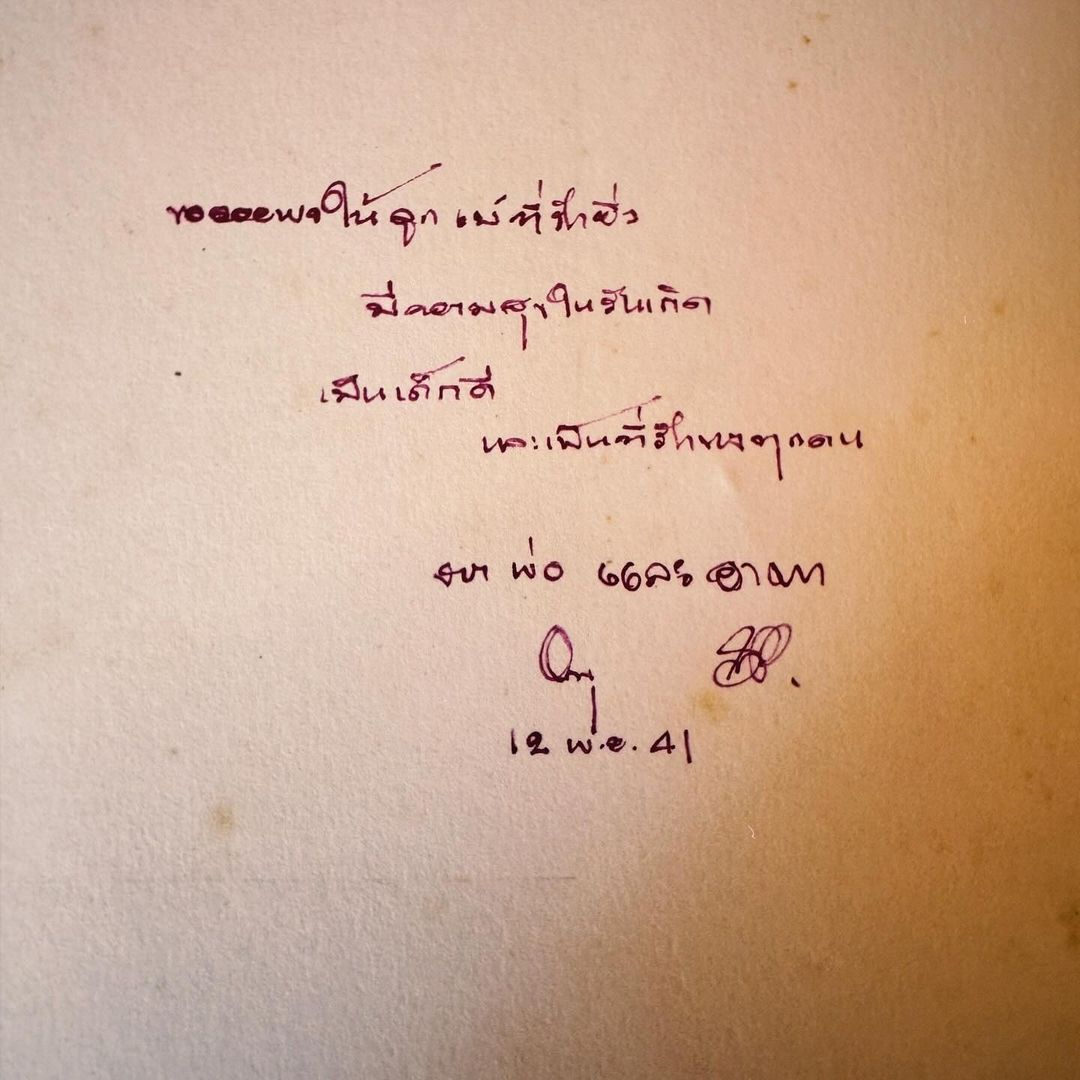 ขออวยพรให้ลูก เมย์ ที่รักยิ่ง
มีความสุขในวันเกิด
เป็นเด็กดี
และเป็นที่รักของทุกคน
จาก พ่อ และ
12 พ.ย. 41